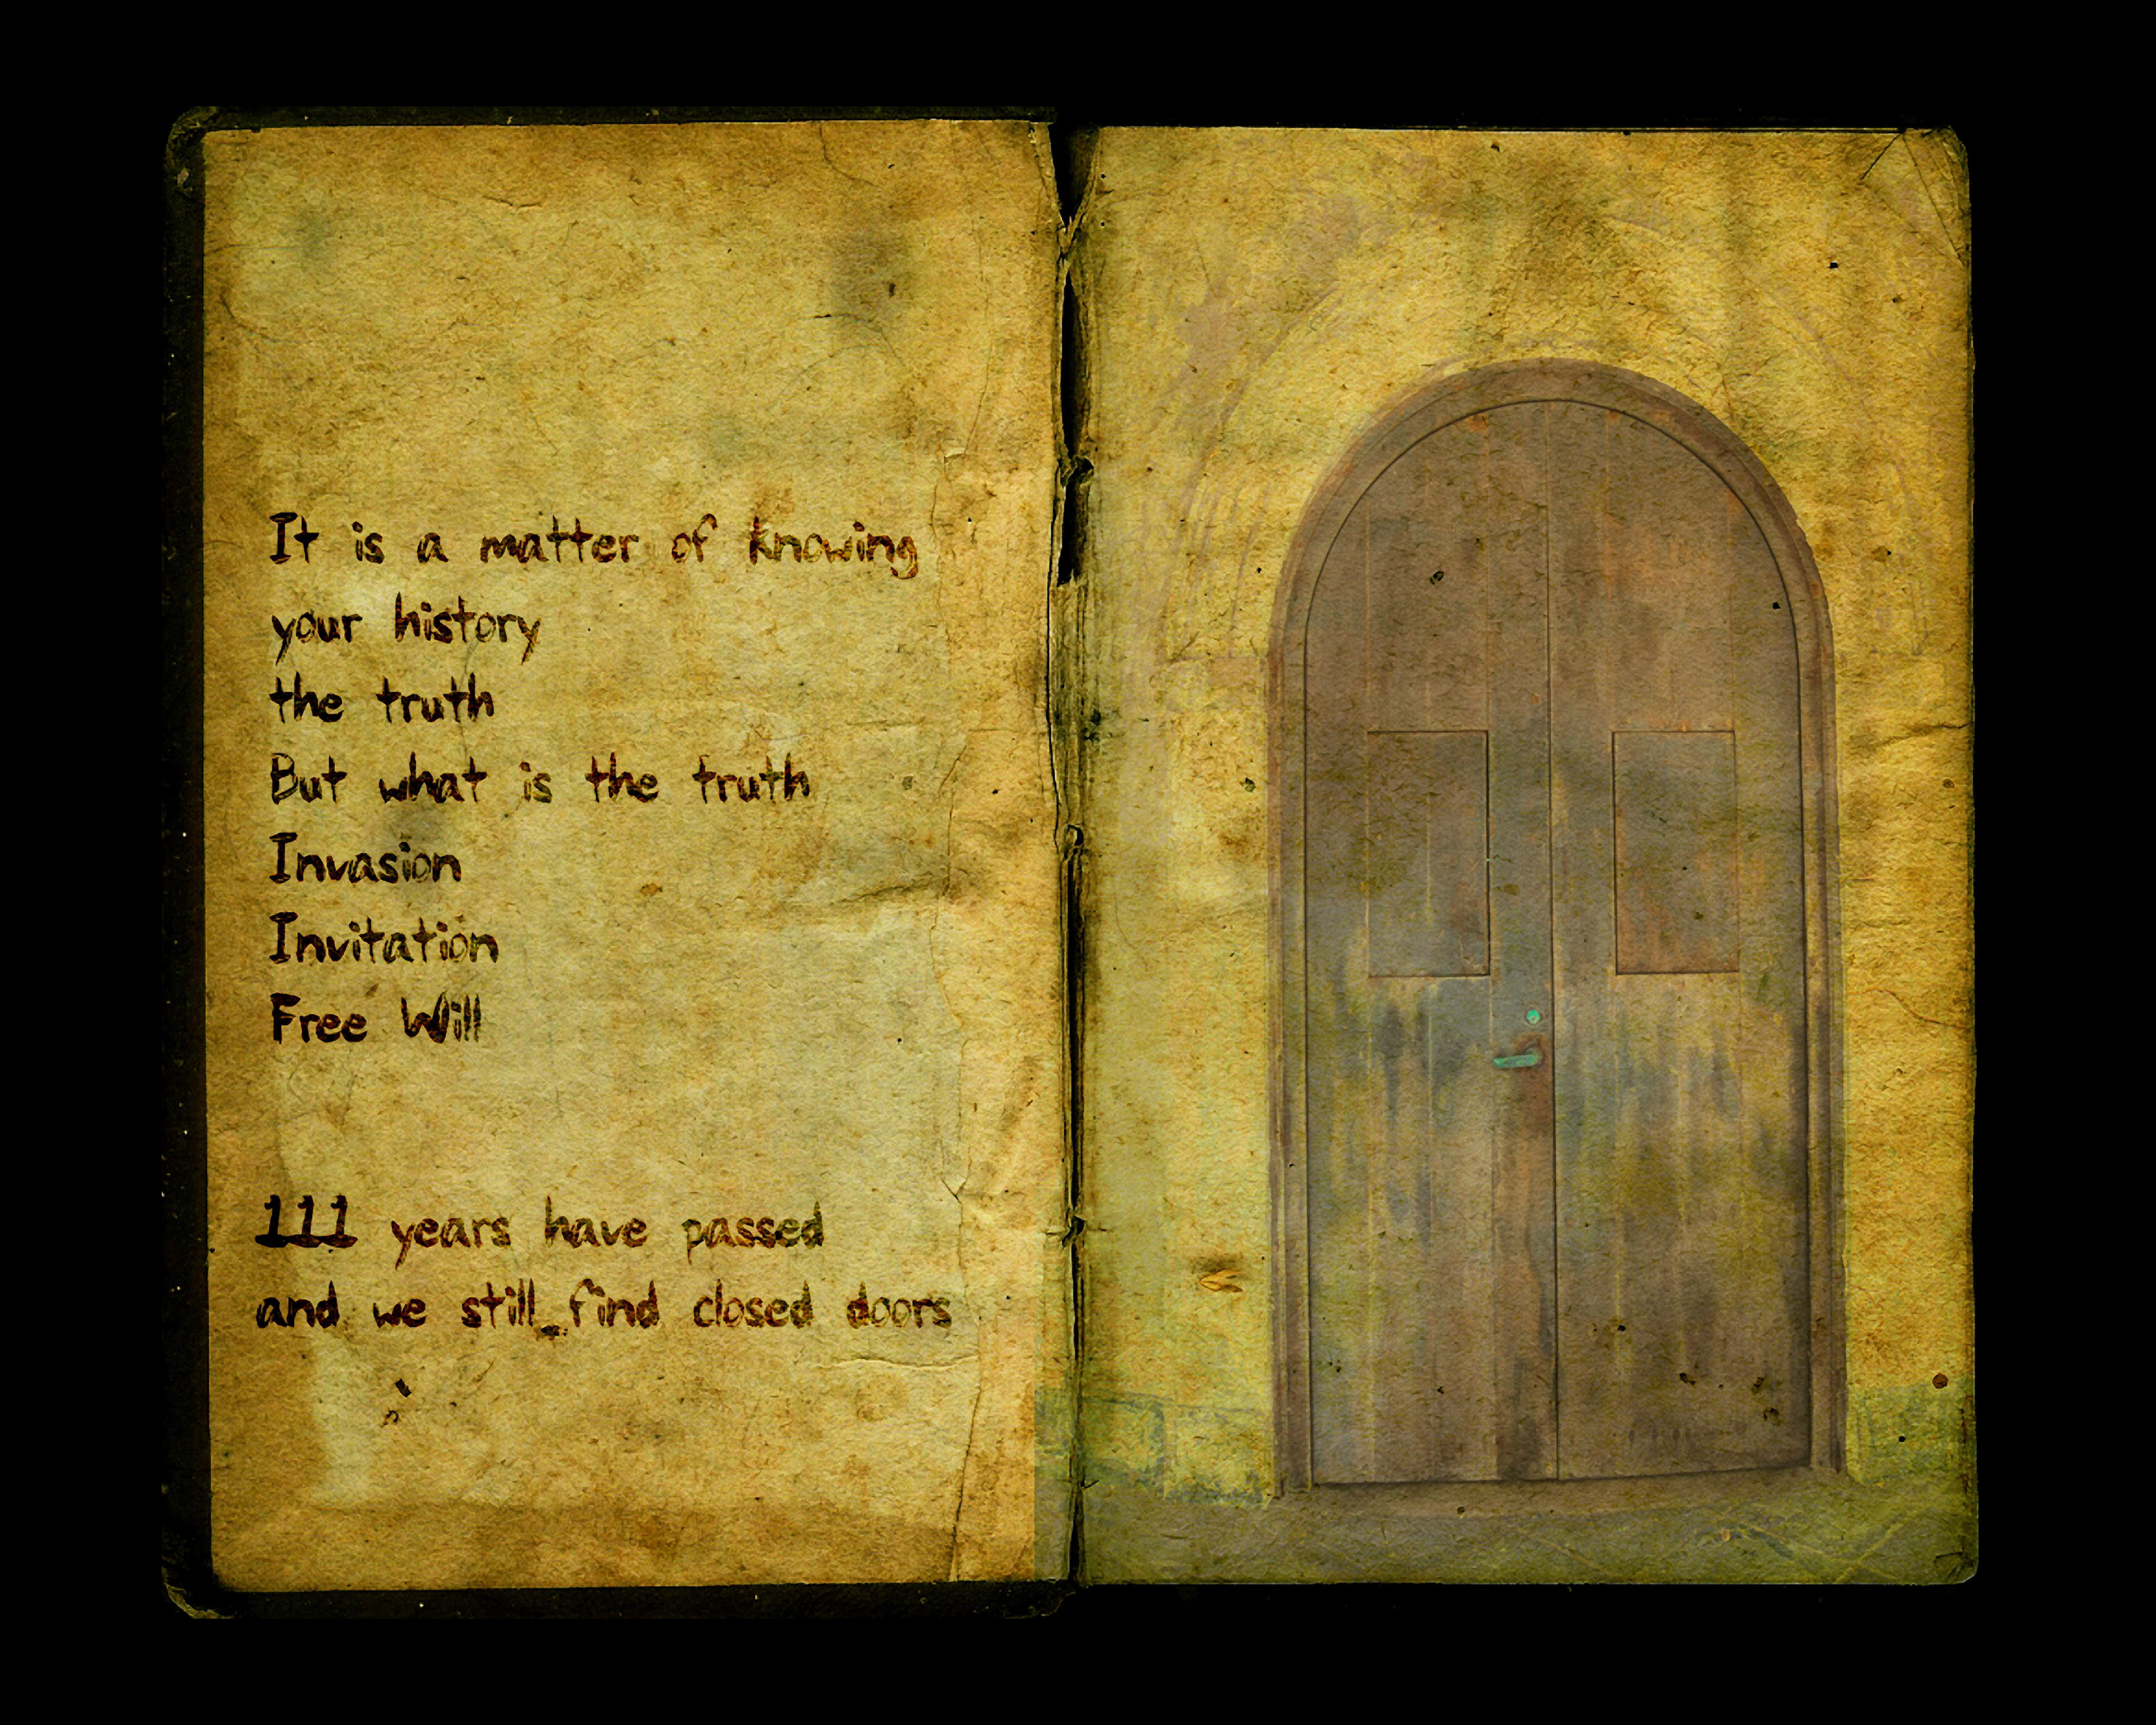 It is a matter of knowing
your history
the truth
But what is the truth
Invasion
Invitation
Free Will
111 years have passed
and we still find closed doors